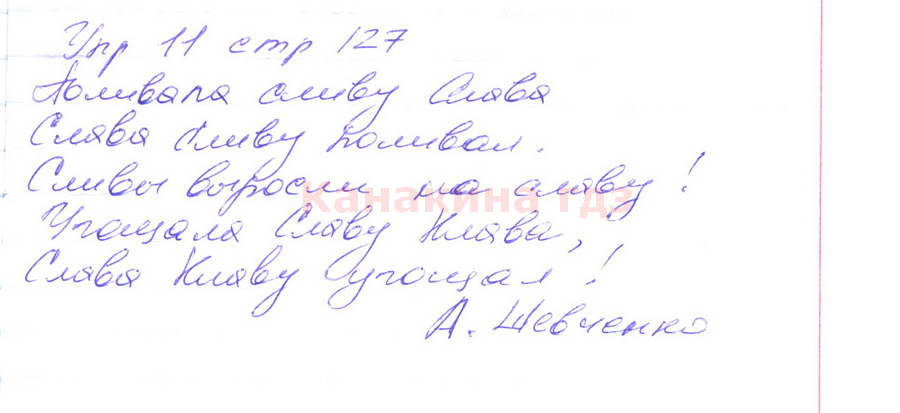 Упр 11 стр 127
Поливала сливу Слава
Слава сливу поливал.
Сливы выросли на славу!
Канакина гдз
Угощала Славу Клава,
Слава Клаву угощал!
А. Шевченко